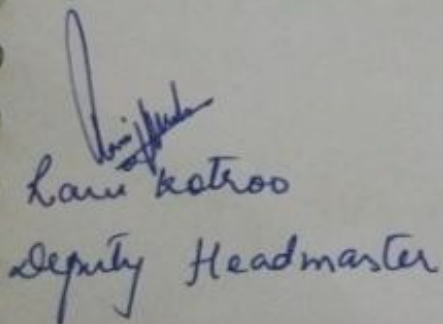 Katroo
Deputy Headmaster